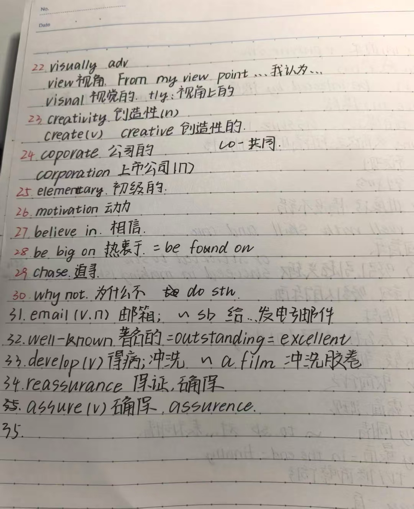 No.
Date
22. visually adv
view 视角. From my view point ... 我认为...
visual 视觉的. tly: 视角上的
23. creativity 创造性(n)
create(v) creative 创造性的.
24. coporate 公司的 co-共同.
corporation 上市公司(n)
25 elementary. 初级的.
26. motivation 动力
27. believe in. 相信.
28 be big on 热衷于. = be found on
29. chase. 追寻.
30 why not. 为什么不 do sth.
31. email (v.n) 邮箱; ~ sb 给..发电子邮件
32. well-known. 著名的=outstanding= excellent
33. develop(v) 得病; 冲洗 ~ a film 冲洗胶卷
34. reassurance 保证, 确保
35. assure (v) 确保, assurence.
35.